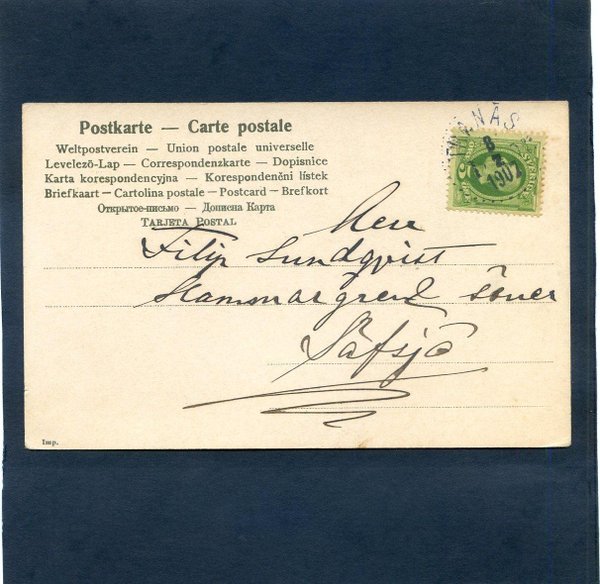 Postkarte — Carte postale
Weltpostverein — Union postale universelle
Levelező-Lap — Correspondenzkarte — Dopisnice
Karta korespondencyjna — Korespondenční lístek
Briefkaart — Cartolina postale — Postcard — Brefkort
Открытое-письмо — Дописна Карта
TARJETA POSTAL
Herr
Filip Sundqvist
Säfsjö
Imp.
8
2
1902